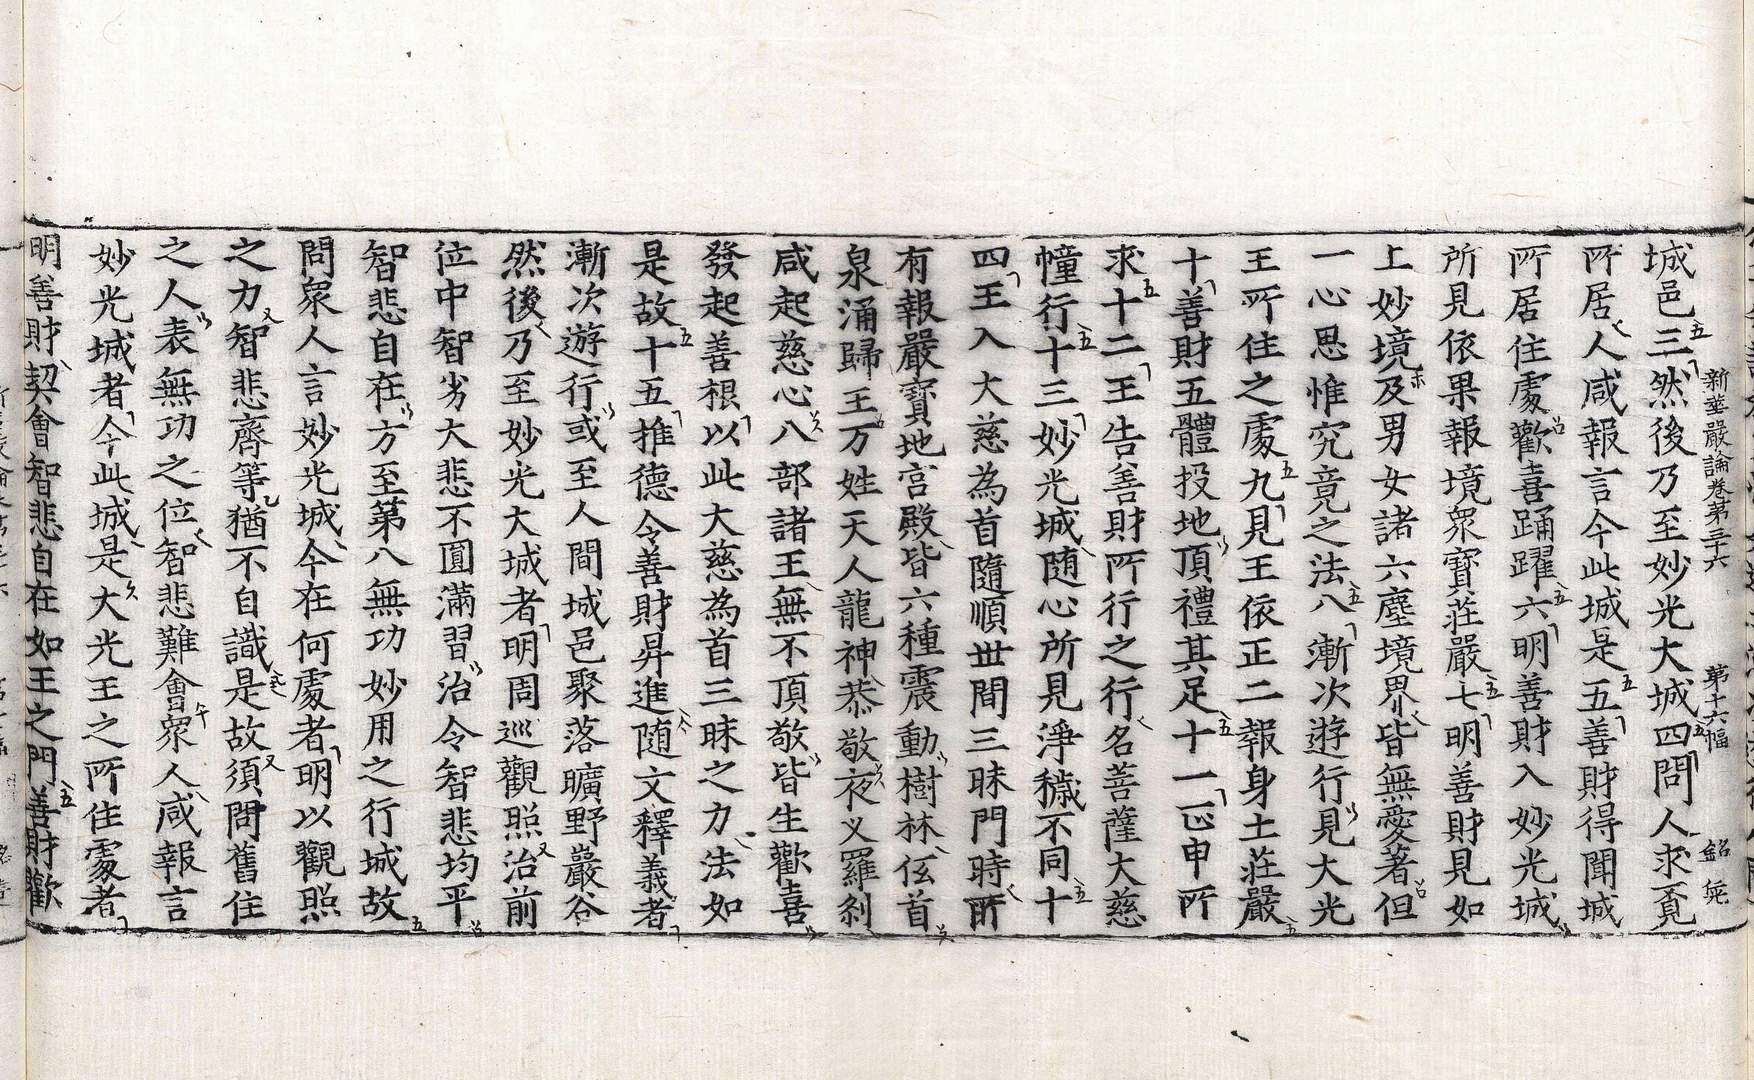 城邑三然後乃至妙光大城四問人求覓
所居人咸報言今此城是五善財得聞城
所居住處歡喜踊躍六明善財入妙光城
所見依果報境衆寶莊嚴七明善財見如
上妙境及男女諸六塵境界皆無愛著但
一心思惟究竟之法八漸次遊行見大光
王所住之處九見王依正二報身土莊嚴
十善財五體投地頂禮其足十一正申所
求十二王告善財所行之行名菩薩大慈
幢行十三妙光城随心所見淨穢不同十
四王入大慈為首隨順世間三昧門時所
有報嚴寶地宫殿皆六種震動樹林伭首
泉涌歸王万姓天人龍神恭敬夜义羅刹
咸起慈心八部諸王無不頂敬皆生歡喜
發起善根以此大慈為首三昧之力法如
是故十五推德令善財昇進随文釋義者
漸次遊行或至人間城邑聚落曠野嚴谷
然後乃至妙光大城者明周巡觀照治前
位中智劣大悲不圓滿習治令智悲均平
智悲自在方至第八無功妙用之行城故
問衆人言妙光城今在何處者明以觀照
之力智悲齊等猶不自識是故須問舊住
之人表無功之位智悲難會衆人咸報言
妙光城者今此城是大光王之所住處者
明善財契會智悲自在如王之門善財歡
新華嚴論卷第三十六 第十六幅